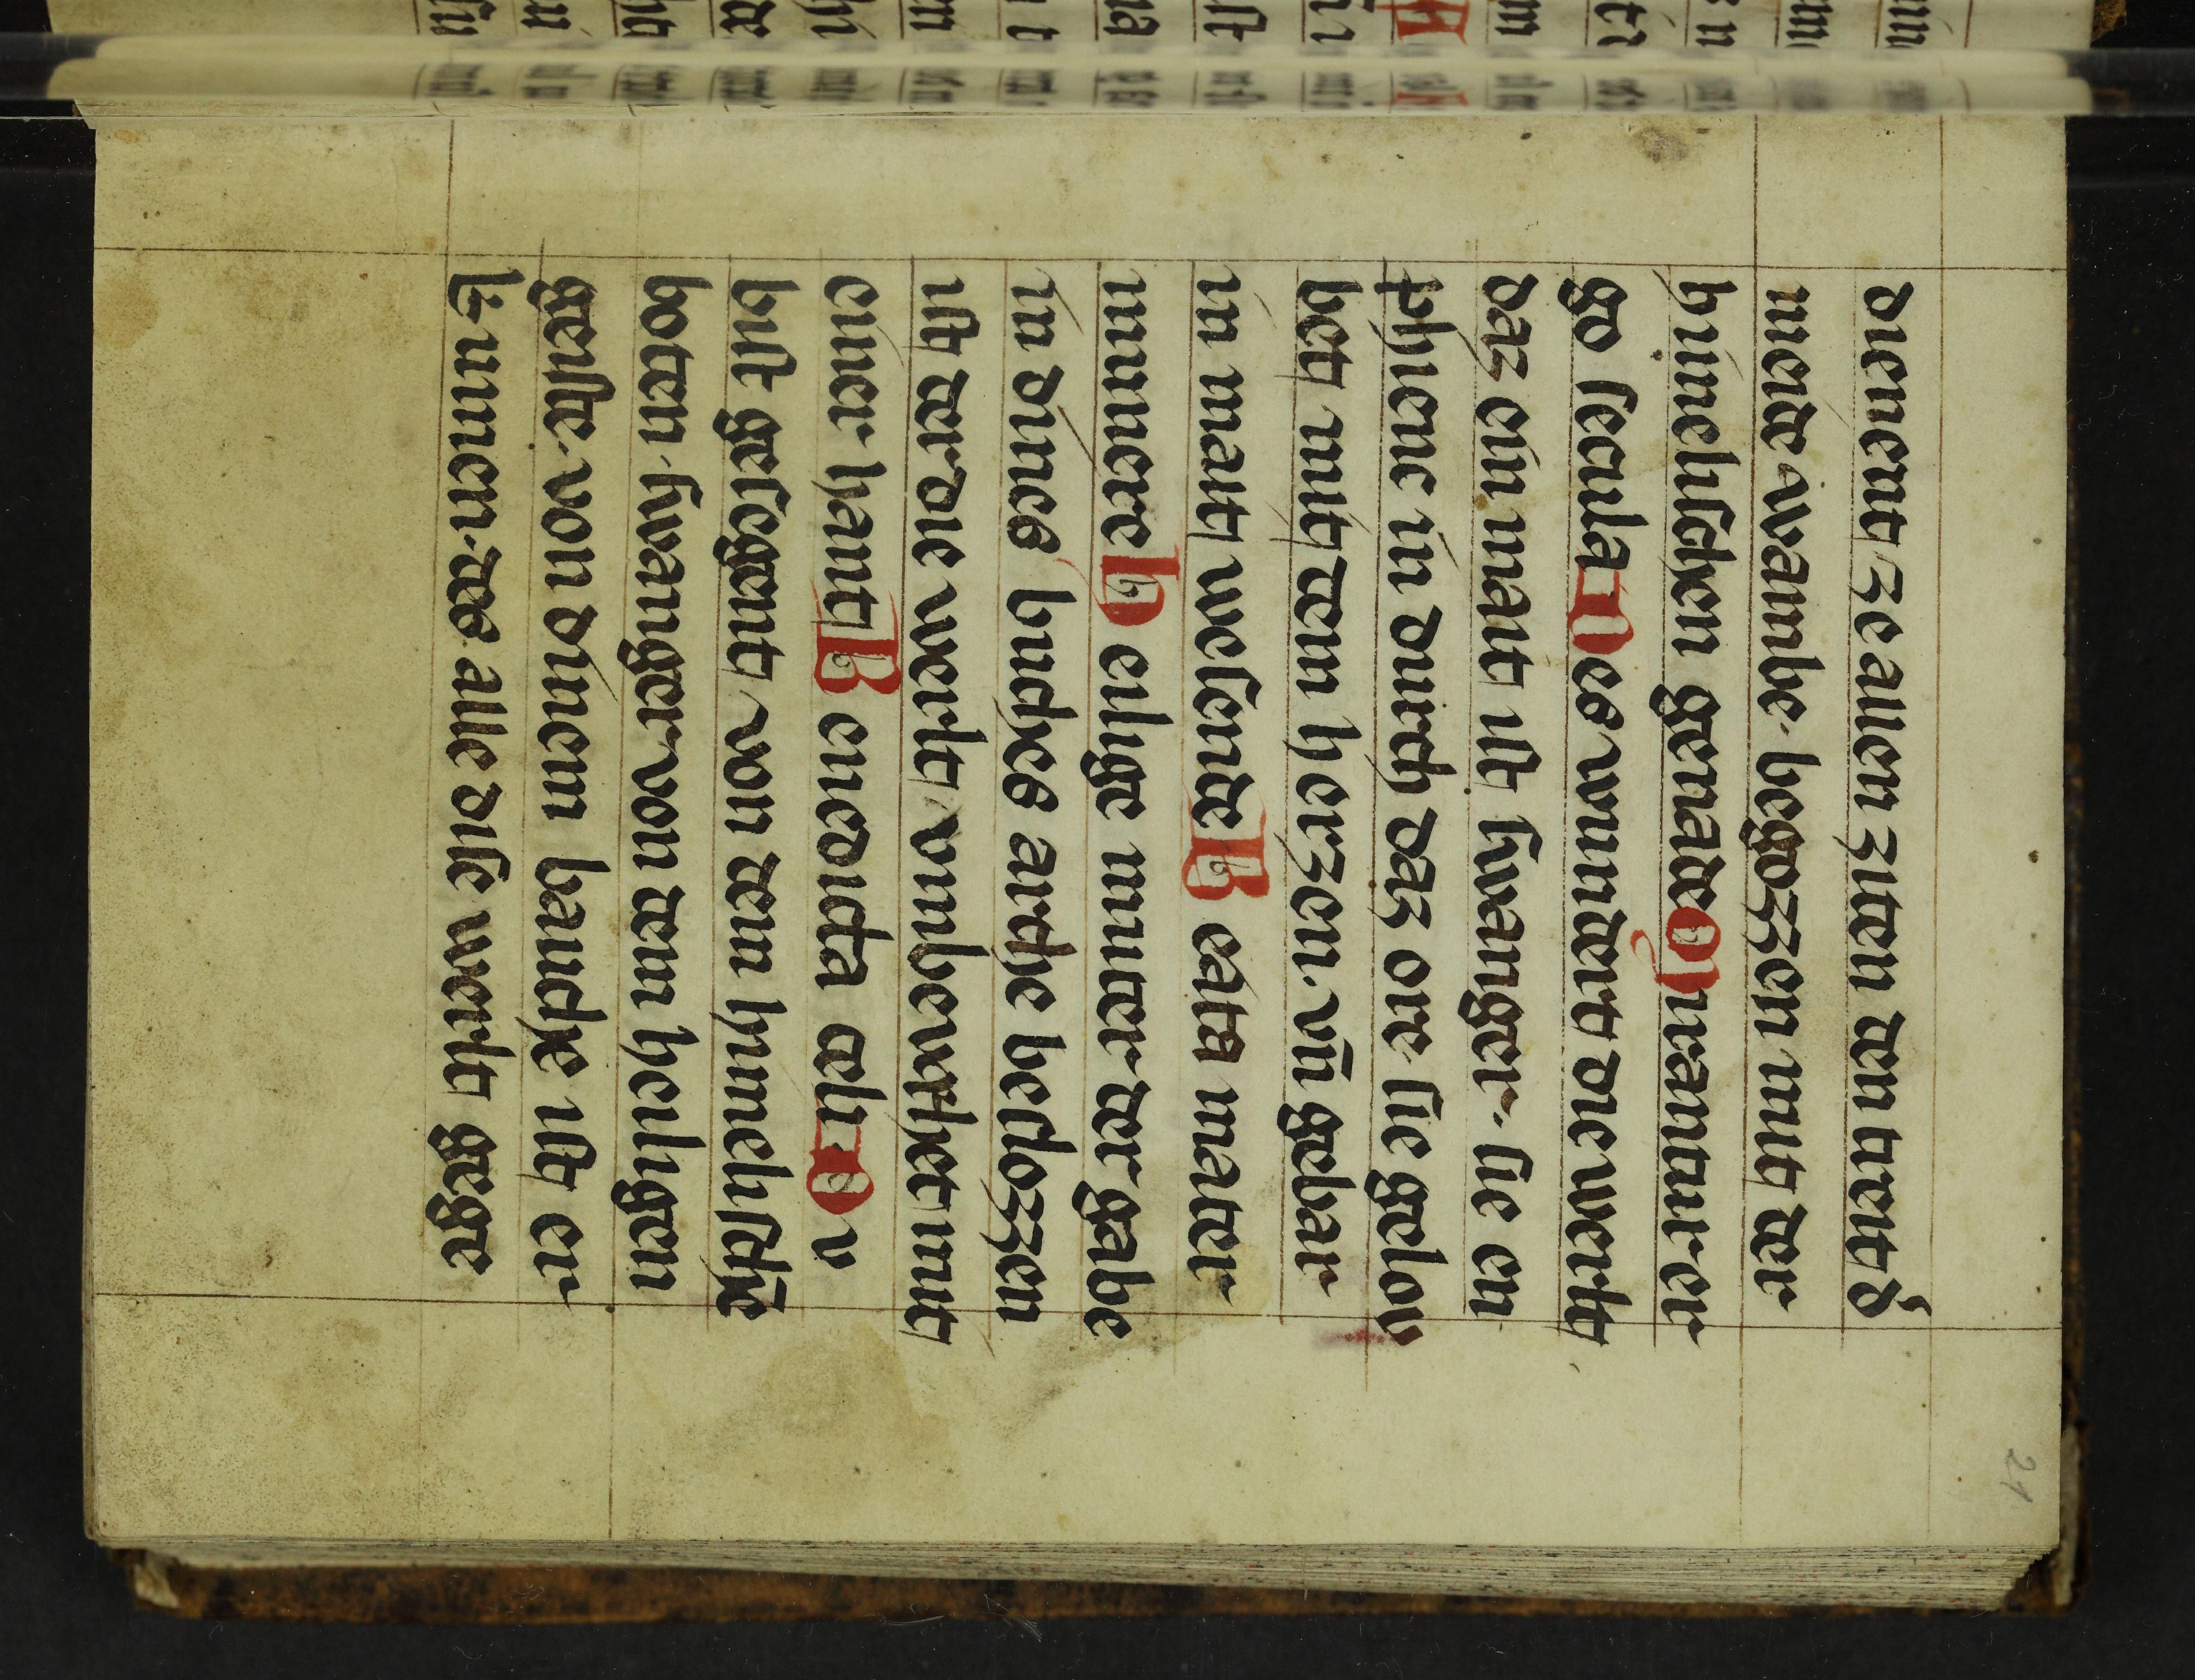 dienent ze allen ziten den treit d᷑
meide wambe. begozzen mit der
himelischen genade O͡J irantur er
go secula Des wundert die werlt
daz ein mait ist swanger. sie en
phienc in durch daz ore sie gelou
bet mit dem herzen. vn̄ gebar
in mait wesende Beata mater
munere Heilige muter der gabe
in dines buches arche beslozzen
ist der die werlt vmbewrket mit
einer hant Benedicta celi Dv
bist gesegent von dem himelisch̄e
boten swanger von dem heiligen
geiste. von dinem bauche ist er
kumen. des alle dise werlt gege
21